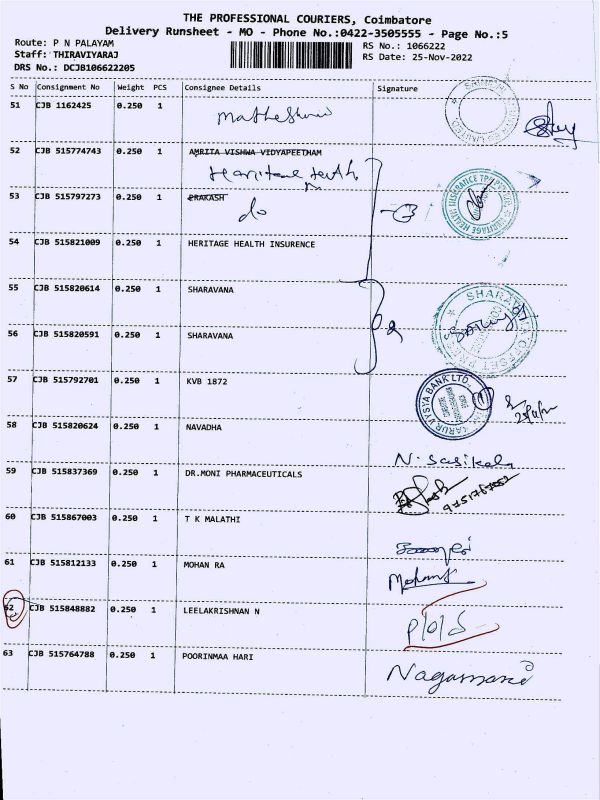 THE PROFESSIONAL COURIERS, Coimbatore
Delivery Runsheet - MO - Phone No.:0422-3505555 - Page No.:5
Route: P N PALAYAM
RS No.: 1066222
Staff: THIRAVIYARAJ
RS Date: 25-Nov-2022
DRS No.: DCJB106622205
S No Consignment No Weight PCS Consignee Details Signature
51 CJB 1162425 0.250 1
52 CJB 515774743 0.250 1 AMRITA VISHWA VIDYAPEETHAM
53 CJB 515797273 0.250 1 PRAKASH
do
54 CJB 515821009 0.250 1 HERITAGE HEALTH INSURENCE
55 CJB 515820614 0.250 1 SHARAVANA
56 CJB 515820591 0.250 1 SHARAVANA
57 CJB 515792701 0.250 1 KVB 1872
KARUR VYSYA BANK LTD.
58 CJB 515820624 0.250 1 NAVADHA
N. Sasikala
59 CJB 515837369 0.250 1 DR.MONI PHARMACEUTICALS
60 CJB 515867003 0.250 1 T K MALATHI
61 CJB 515812133 0.250 1 MOHAN RA
62 CJB 515848882 0.250 1 LEELAKRISHNAN N
63 CJB 515764788 0.250 1 POORINMAA HARI
Nagamani